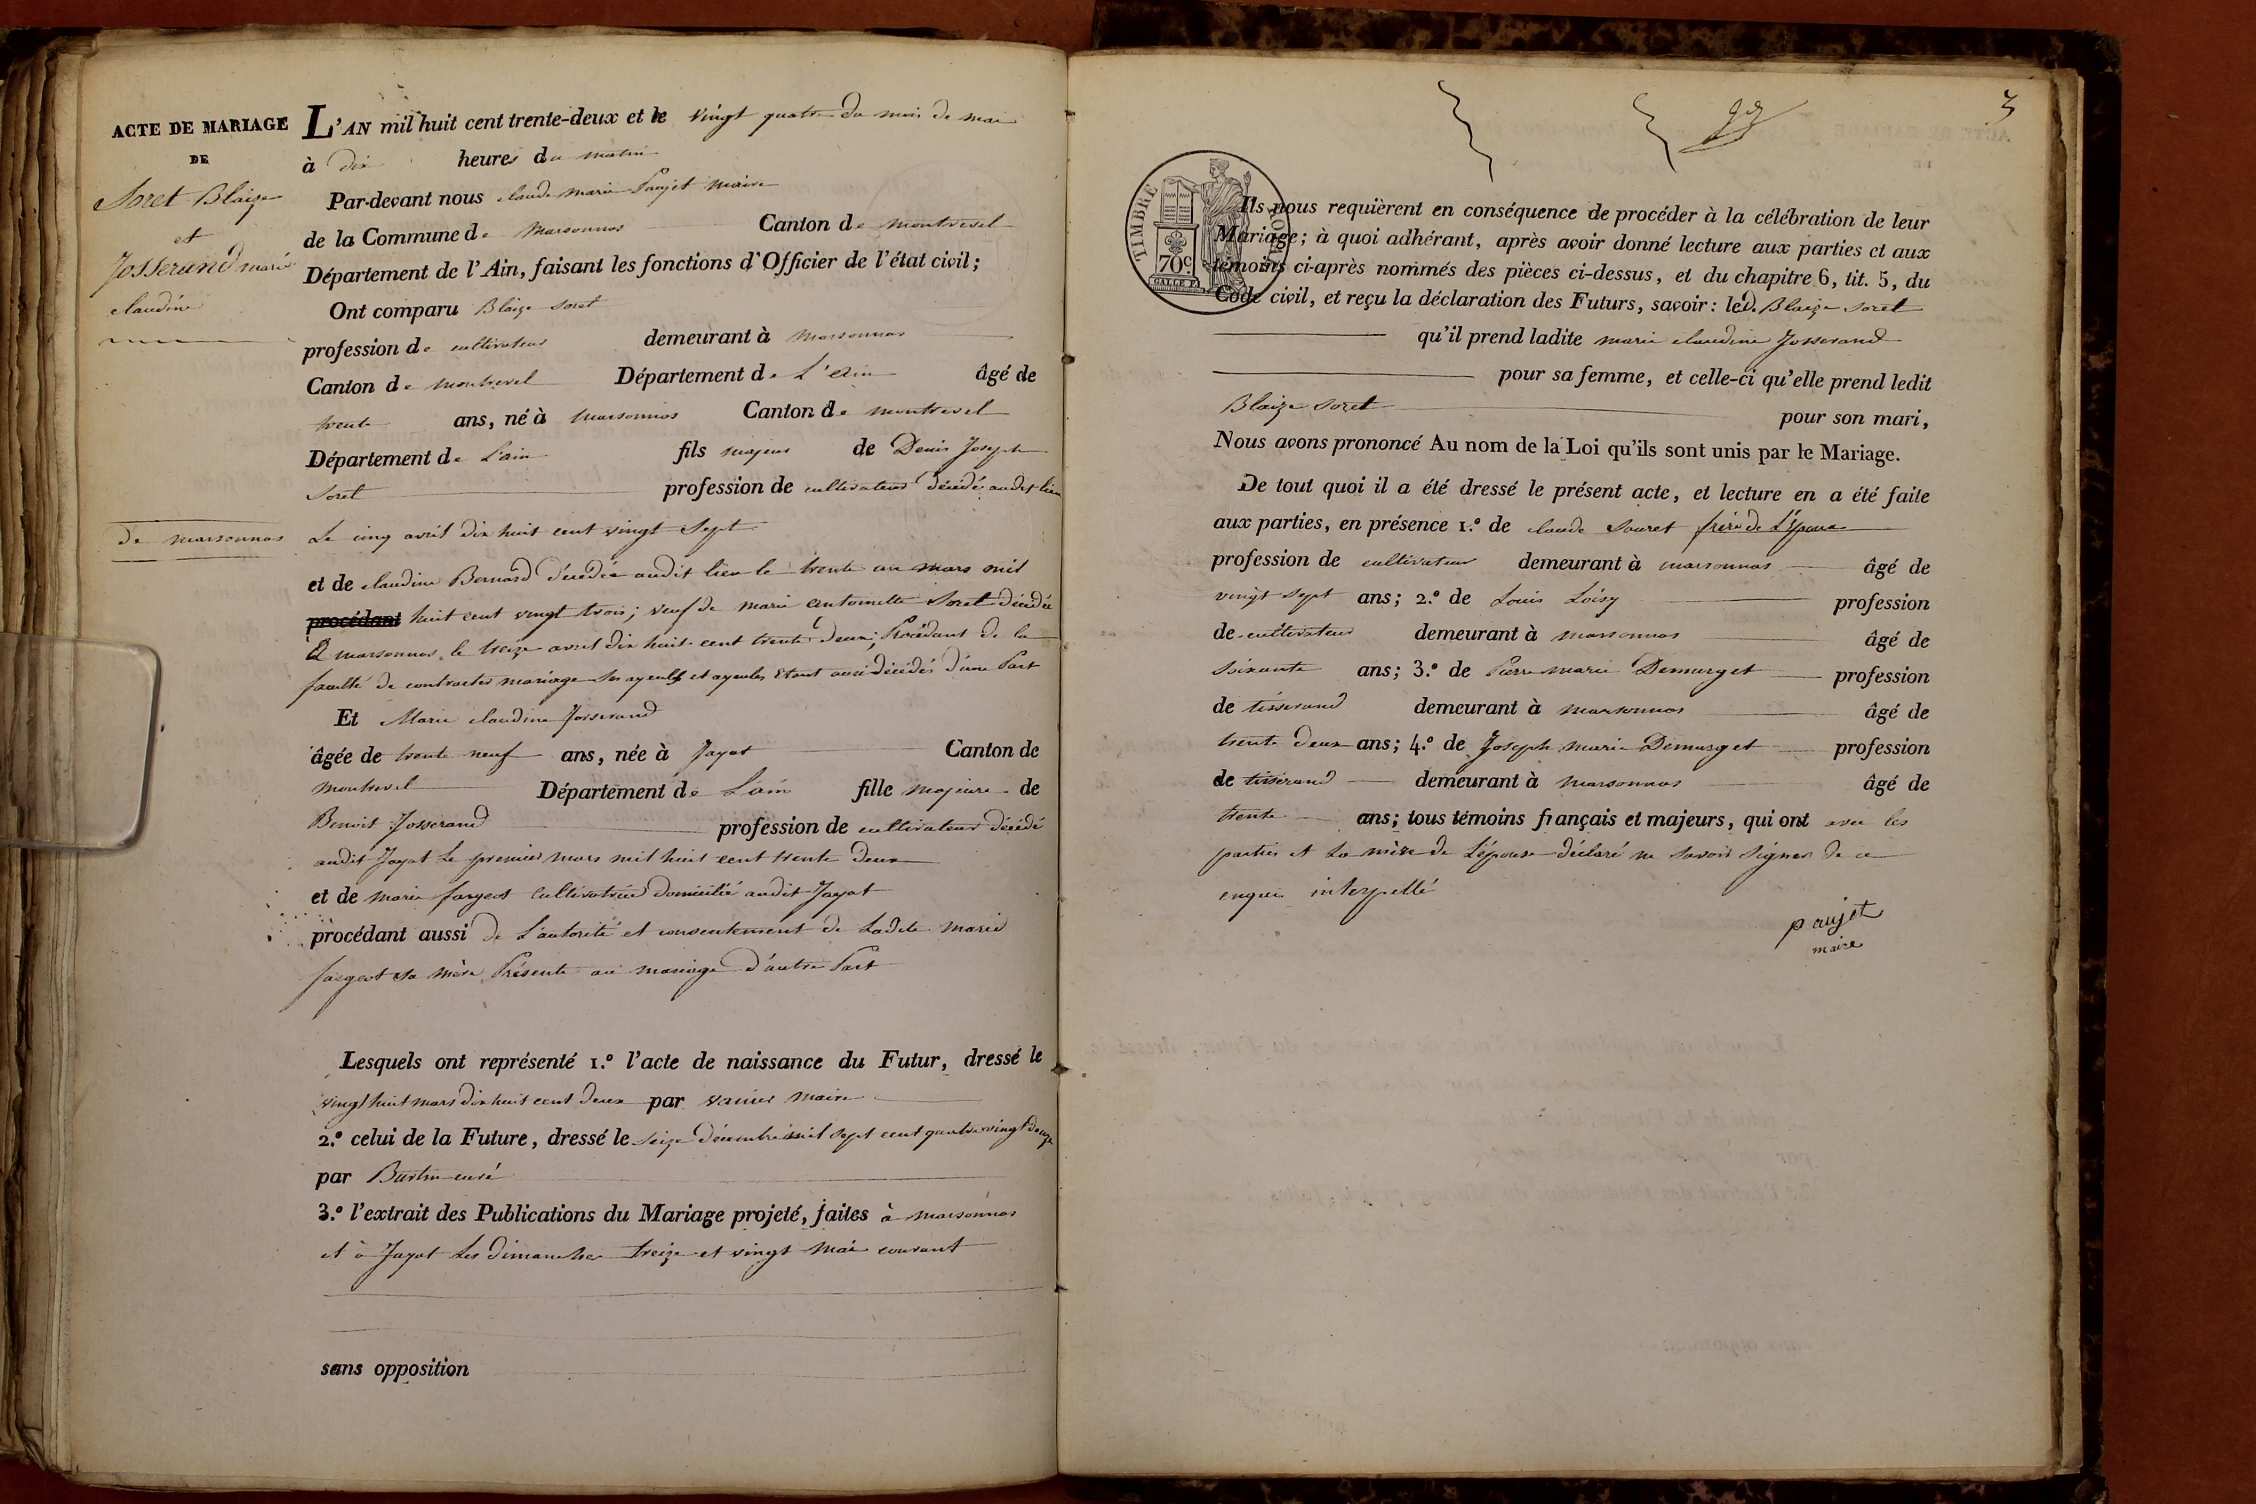 ACTE DE MARIAGE
DE
Soret Blaize
et
Josserand marie
claudine
L'AN mil huit cent trente-deux et le vingt quatre du mois de mai
à dix heures du matin
Par-devant nous claude marie Paujet maire
de la Commune de marsonnas Canton de montrevel
Département de l'Ain, faisant les fonctions d'Officier de l'état civil;
Ont comparu Blaize Soret
profession de cultivateur demeurant à marsonnas
Canton de montrevel Département de L'Ain âgé de
trente ans, né à marsonnas Canton de montrevel
Département de L'ain fils majeur de Denis Joseph
Soret profession de cultivateur décédé audit lieu
de marsonnas Le cinq avril dix huit cent vingt Sept
et de claudine Bernard décédée audit lieu le trente un mars mil
procédant huit cent vingt trois; veuf de marie antoinette Soret décédée
à marsonnas le treize avril dix huit cent trente deux; Procédant de la
faculté de contracter mariage Ses ayeuls et ayeules Etant aussi décédés d'une Part
Et Marie claudine Josserand
âgée de trente neuf ans, née à Jayat Canton de
montrevel Département de L'ain fille majeure de
Benoit Josserand profession de cultivateur décédé
audit Jayat Le premier mars mil huit cent trente deux
et de marie fargeot Cultivatrice domicilié audit Jayat
procédant aussi de L'autorité et consentement de Ladite marie
fargeot sa mère Présente au mariage d'autre Part
Lesquels ont représenté 1.º l'acte de naissance du Futur, dressé le
vingt huit mars dix huit cent deux par maire
2.º celui de la Future, dressé le Seize décembre mil sept cent quatre vingt douze
par curé
3.º l'extrait des Publications du Mariage projeté, faites à marsonnas
et à Jayat Les dimanches treize et vingt mai courant
sans opposition
3
TIMBRE ROYAL
70c.
Ils nous requièrent en conséquence de procéder à la célébration de leur
Mariage; à quoi adhérant, après avoir donné lecture aux parties et aux
témoins ci-après nommés des pièces ci-dessus, et du chapitre 6, tit. 5, du
Code civil, et reçu la déclaration des Futurs, savoir: led. Blaize Soret
qu'il prend ladite marie claudine Josserand
pour sa femme, et celle-ci qu'elle prend ledit
Blaize Soret pour son mari,
Nous avons prononcé Au nom de la Loi qu'ils sont unis par le Mariage.
De tout quoi il a été dressé le présent acte, et lecture en a été faite
aux parties, en présence 1.º de claude Souret frère de L'Epoux
profession de cultivateur demeurant à marsonnas âgé de
vingt sept ans; 2.º de Louis Loisy profession
de cultivateur demeurant à marsonnas âgé de
Soixante ans; 3.º de Pierre marie Demurget profession
de tisserand demeurant à marsonnas âgé de
trente deux ans; 4.º de Joseph marie Demurget profession
de tisserand demeurant à marsonnas âgé de
trente ans; tous témoins français et majeurs, qui ont avec les
parties et La mère de L'épouse déclaré ne Savoir Signer de ce
enquis interpellé
paujet
maire